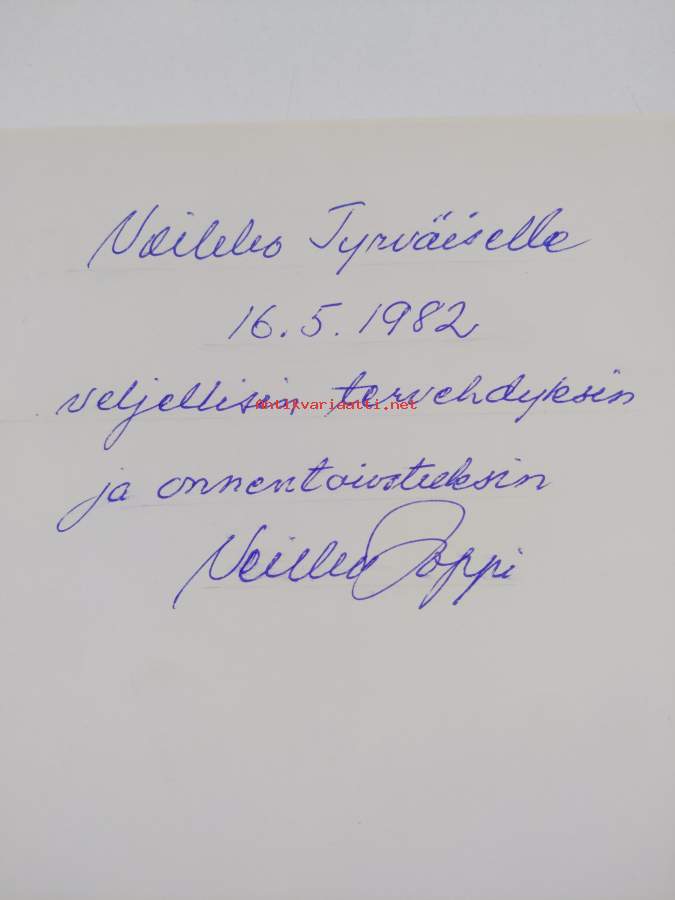 Veikko Tyrväiselle
16.5.1982
veljellisin tervehdyksin
antikvariaatti.net
ja onnentoivotuksin
Veikko Poppi